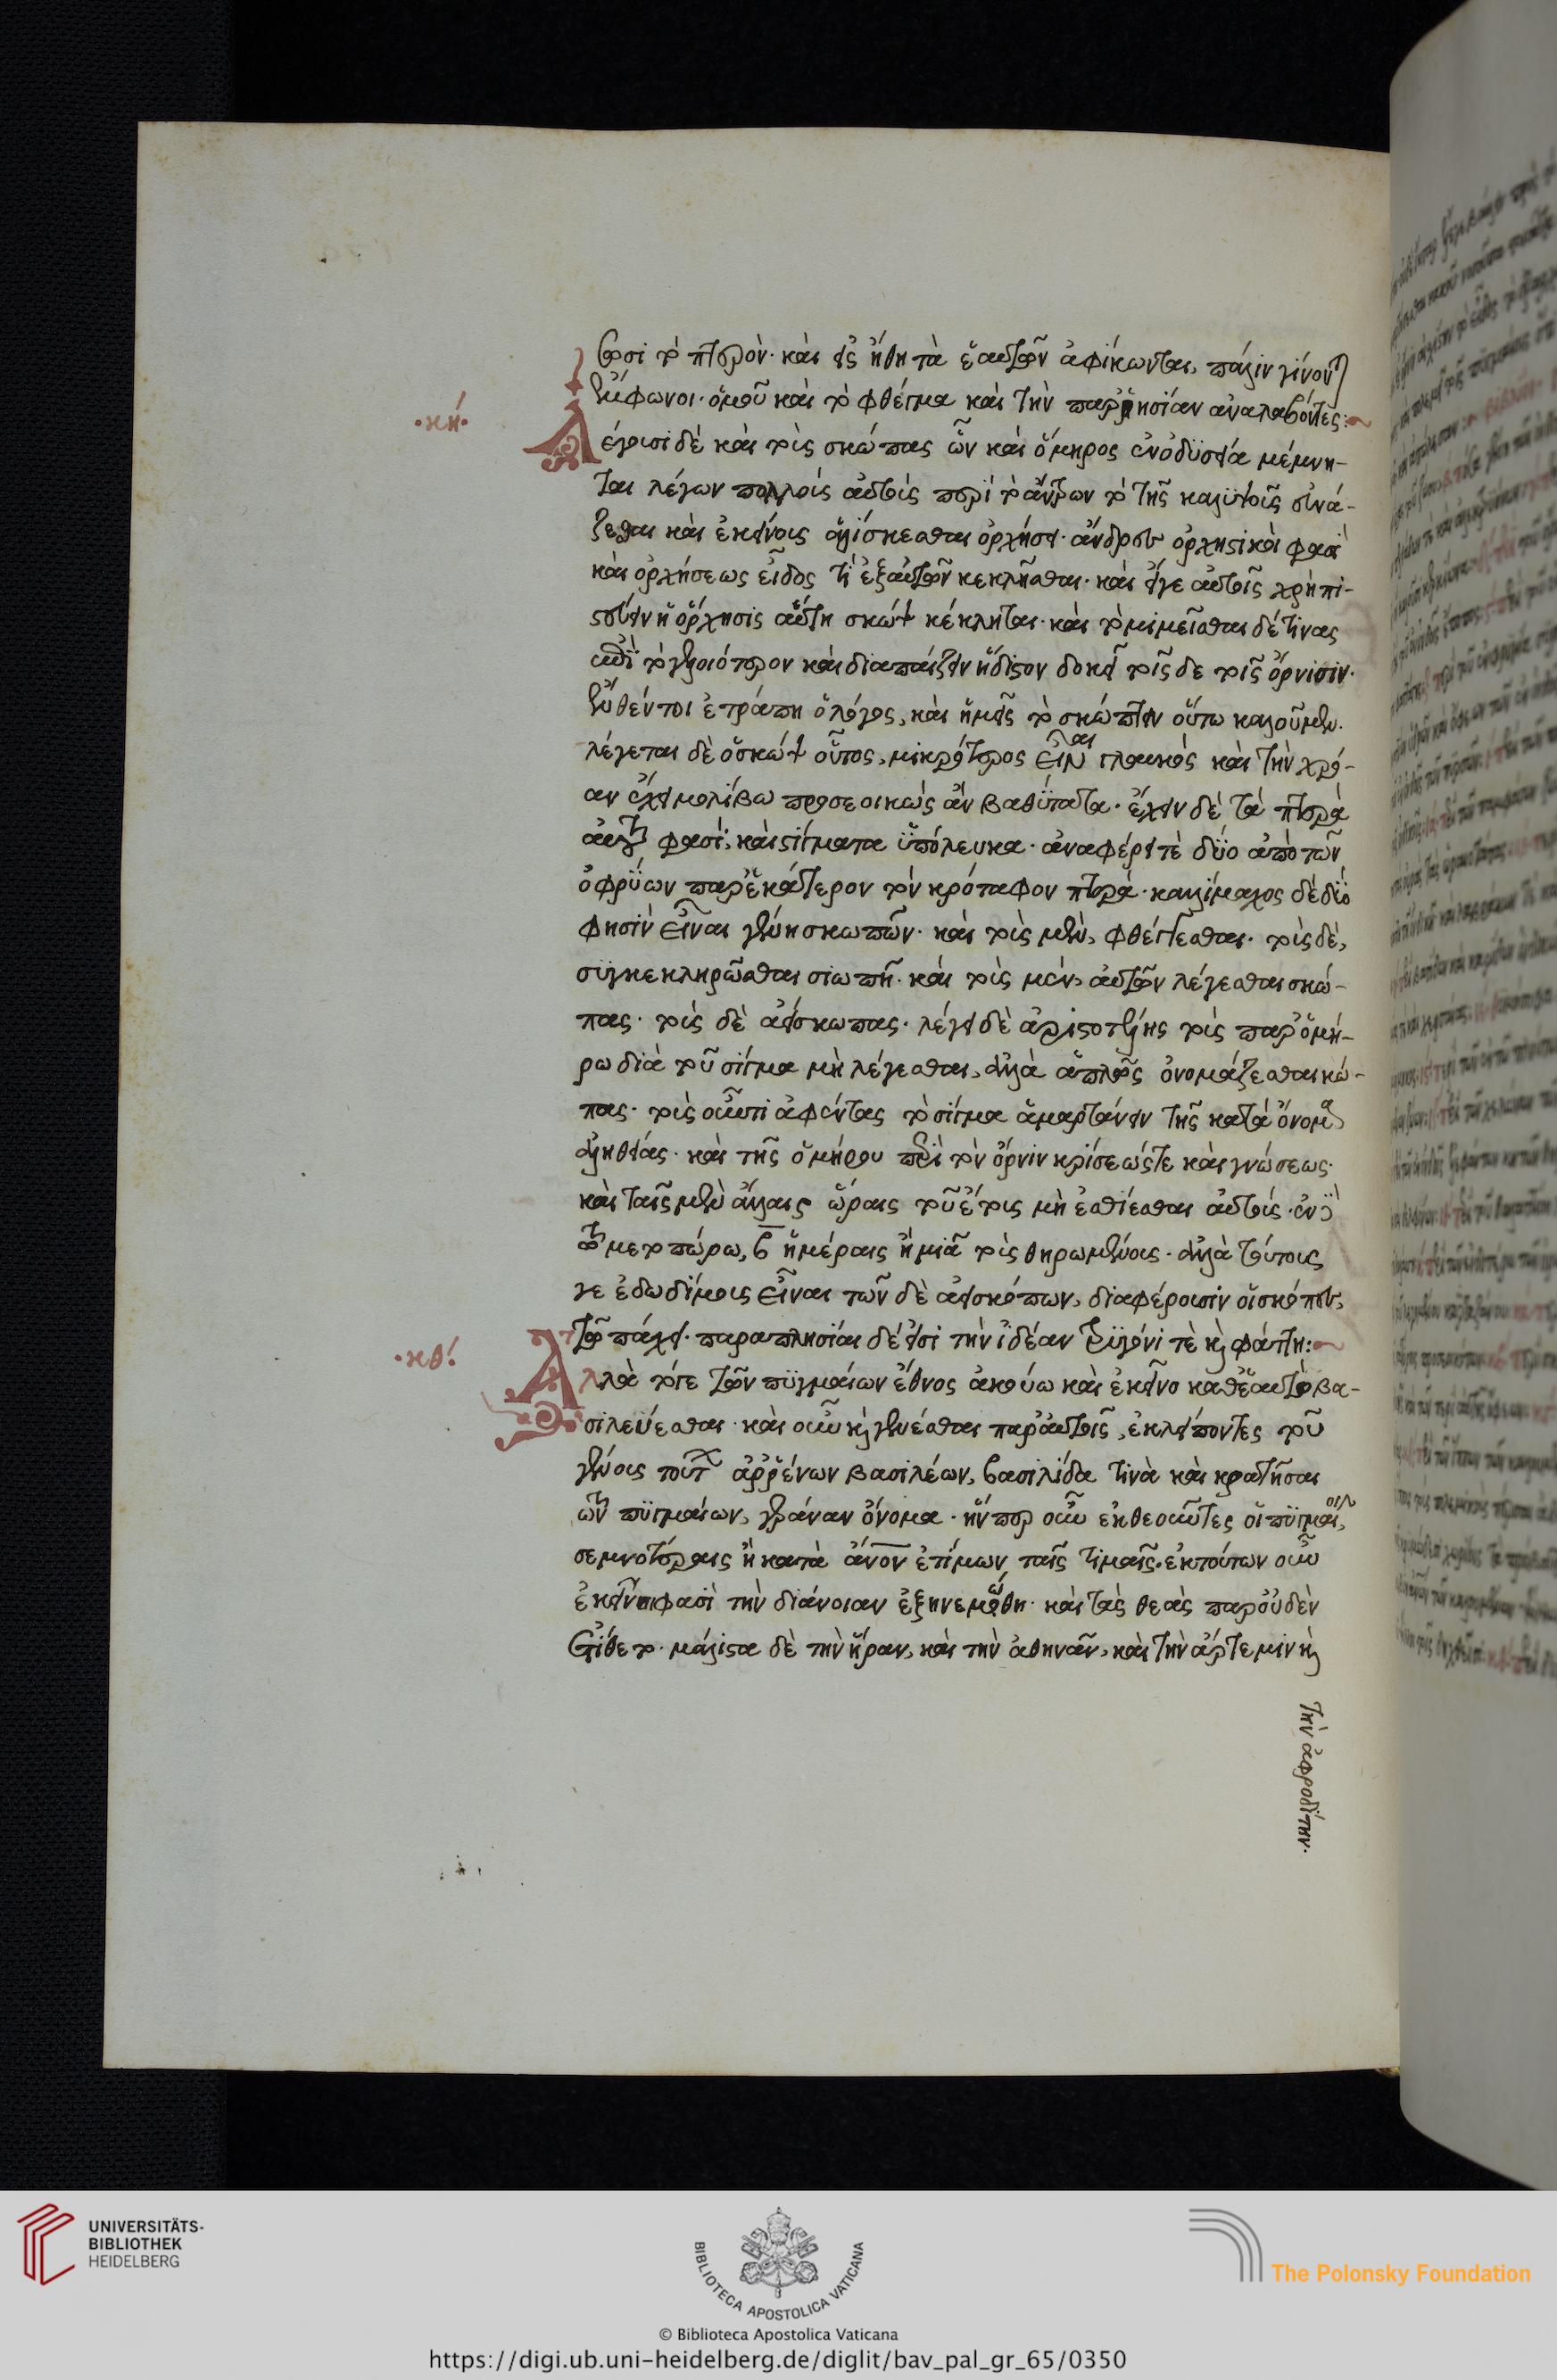 ωσι τὸ πτερὸν· καὶ εἰς ἤθη τὰ ἑαυτῶν ἀφίκωνται, πάλιν γίνονται
εὔφωνοι· ὁμοῦ καὶ τὸ φθέγμα καὶ τὴν παρρησίαν ἀναλαβόντες:
·κή·
Λέγουσι δὲ καὶ τοὺς σκώπας ὧν καὶ ὅμηρος ἐν ὀδυσσεία μέμνη-
ται λέγων πολλοὺς αὐτοὺς περὶ τὸ ἄντρον τὸ τῆς καλυψοῦς
καὶ ἐκείνους ἁλίσκεσθαι ὀρχήσει· ἄνδρες ὀρχηστικοὶ φασὶ
καὶ ὀρχήσεως εἶδος τί ἐξ αὐτῶν κεκλῆσθαι· καὶ εἴγε αὐτοῖς χρὴ πι-
στεύειν ἡ ὄρχησις αὕτη σκώψ κέκληται· καὶ τὸ μιμεῖσθαι δέ τινας
ἐπὶ τὸ γελοιότερον καὶ διαπαίζειν ἥδιστον δοκεῖ τοῖς δε τοῖς ὄρνισιν·
ἔνθέν τοι ἐτράπη ὁ λόγος, καὶ ἡμεῖς τὸ σκώπτειν οὕτω καλοῦμεν.
λέγεται δὲ ὁ σκώψ οὗτος, μικρότερος εἶναι γλαυκὸς καὶ τὴν χρό-
αν ἔχει μολίβω προσεοικὼς ἂν βαθύτατα· ἔχειν δὲ τὰ πτερὰ
αὐτόν φασὶ, καὶ στίγματα ὑπόλευκα· ἀναφέρει τὲ δύο ἀπὸ τῶν
ὀφρύων παρ' ἑκάτερον τὸν κρόταφον πτερά· καλίμαχος δὲ δύο
φησὶν εἶναι γένη σκωπῶν· καὶ τοὺς μὲν, φθέγγεσθαι· τοὺς δὲ,
συγκεκληρῶσθαι σιωπῆ· καὶ τοὺς μὲν, αὐτῶν λέγεσθαι σκώ-
πας· τοὺς δὲ ἀείσκωπας· λέγει δὲ ἀριστοτέλης τοὺς παρ' ὁμή-
ρω διὰ τοῦ σίγμα μὴ λέγεσθαι, ἀλλὰ ἁπλῶς ὀνομάζεσθαι κώ-
πας· τοὺς οὖν τι ἀφέντας τὸ σίγμα ἁμαρτάνειν τῆς κατὰ ὄνομα
ἀληθείας· καὶ τῆς ὁμήρου περὶ τὸν ὄρνιν κρίσεώς τε καὶ γνώσεως·
καὶ ταῖς μὲν ἄλλαις ὥραις τοῦ ἔτους μὴ ἐσθίεσθαι αὐτοὺς· ἐν
τῶ μετοπώρω, β ἡμέραις ἢ μιᾶ τοὺς θηρωμένους· ἀλλὰ τούτους
γε ἐδωδίμους εἶναι τῶν δὲ ἀεισκόπων, διαφέρουσιν οἱ σκόπες,
τῶ πάχει· παραπλησίαι δέ εἰσι τὴν ἰδέαν τρυγόνι τὲ καὶ φάττη:
·κθ΄·
Ἀλλὰ τόγε τῶν πυγμαίων ἔθνος ἀκούω καὶ ἐκεῖνο καθ' ἑαυτὸ βα-
σιλεύεσθαι· καὶ οὖν καὶ γενέσθαι παρ' αὐτοῖς, ἐκλειπόντες τοῦ
γένους τοῦτ ἀρρένων βασιλέων, βασιλίδα τινὰ καὶ κρατῆσαι
τῶν πυγμαίων, γεράναν ὄνομα· ἥνπερ οὖν ἐκθεοῦντες οἱ πυγμαῖοι,
σεμνοτέραις ἢ κατὰ ἄνον ἐτίμων ταῖς τιμαῖς· ἐκ τούτων οὖν
ἐκείνη φασὶ τὴν διάνοιαν ἐξηνεμώθη· καὶ τὰς θεὰς παρ' οὐδὲν
ἐτίθετο· μάλιστα δὲ τὴν ἥραν, καὶ τὴν ἀθηνᾶν, καὶ τὴν ἄρτεμιν καὶ
τὴν ἀφροδίτην·
UNIVERSITÄTS-
BIBLIOTHEK
HEIDELBERG
BIBLIOTECA APOSTOLICA VATICANA
The Polonsky Foundation
© Biblioteca Apostolica Vaticana
https://digi.ub.uni-heidelberg.de/diglit/bav_pal_gr_65/0350